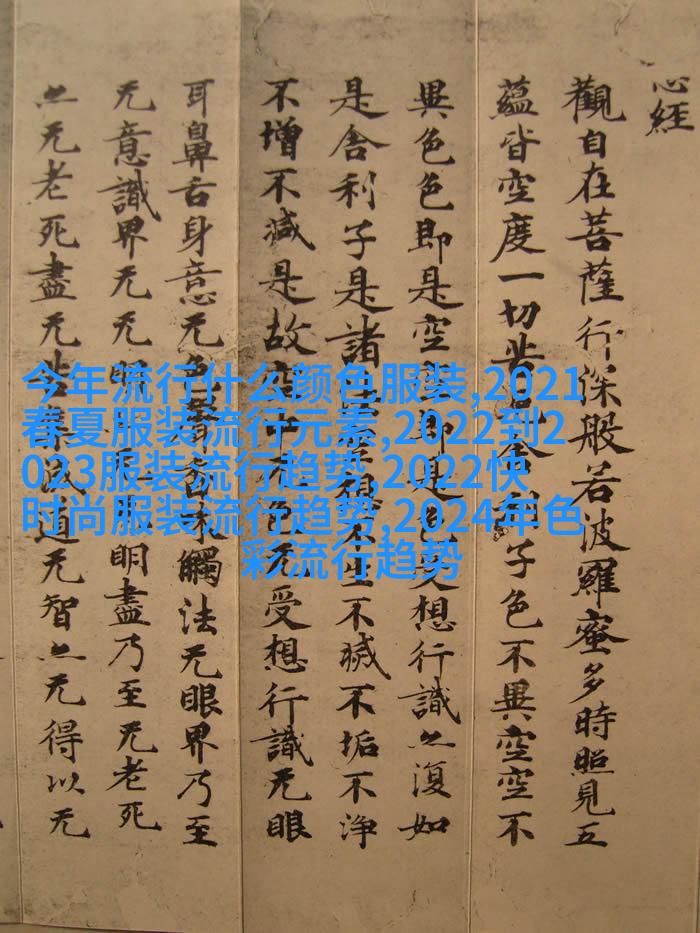 心經
觀自在菩薩行深般若波羅蜜多時照見五
蘊皆空度一切苦舍子色不異空空不
異色色即是空空即是色受想行識亦復如
是舍利子是諸相不生不滅不垢不淨
不增不減是故空中无色无受想行識无眼
耳鼻舌身意无色聲香味觸法无眼界乃至
无意識界无无明无明盡乃至无老死
亦无老死盡无苦集滅道无智亦无得以无
今年流行什么颜色服装,2021
春夏服装流行元素,2022到2
023服装流行趋势,2022快
时尚服装流行趋势,2024年色
彩流行趋势